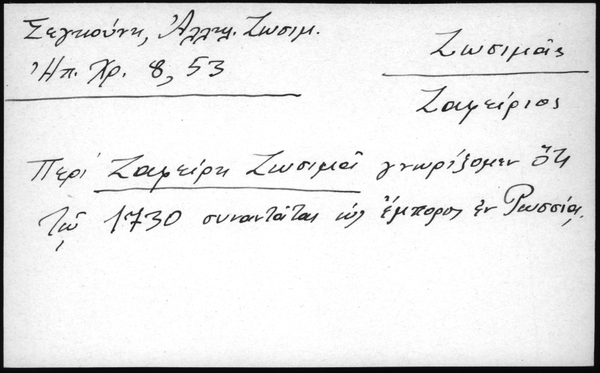 Σεγκούνη, Ἀλλη. Ζωσιμ.
Ἠπ. Χρ. 8, 53
Ζωσιμᾶς
Ζαφείριος
Περὶ Ζαφείρη Ζωσιμᾶ γνωρίζομεν ὅτι
τῷ 1730 συναντᾶται ὡς ἔμπορος ἐν Ρωσσίᾳ.